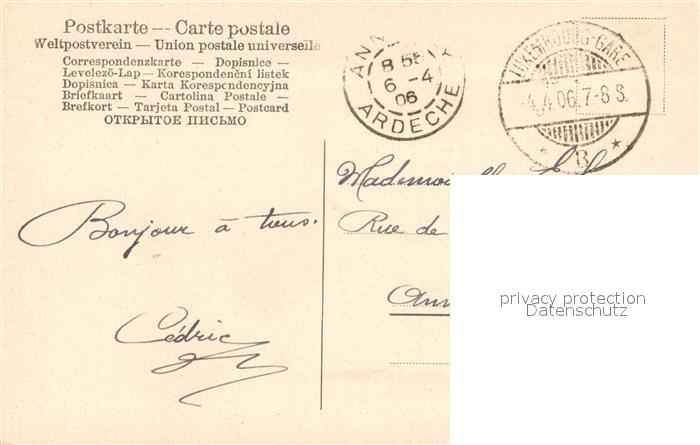 Postkarte — Carte postale
Weltpostverein — Union postale universelle
Correspondenzkarte — Dopisnice —
Levelező-Lap — Korespondenční listek
Dopisnica — Karta Korespcndencyjna
Briefkaart — Cartolina Postale —
Brefkort — Tarjeta Postal — Postcard
ОТКРЫТОЕ ПИСЬМО
ANN
8 55
6 -4
06
ARDECHE
LUXEMBOURG-GARE
-4.4.06. 7-8 S.
* B *
Mademoi
Rue de
Ann
Bonjour à tous.
Cédric
privacy protection
Datenschutz